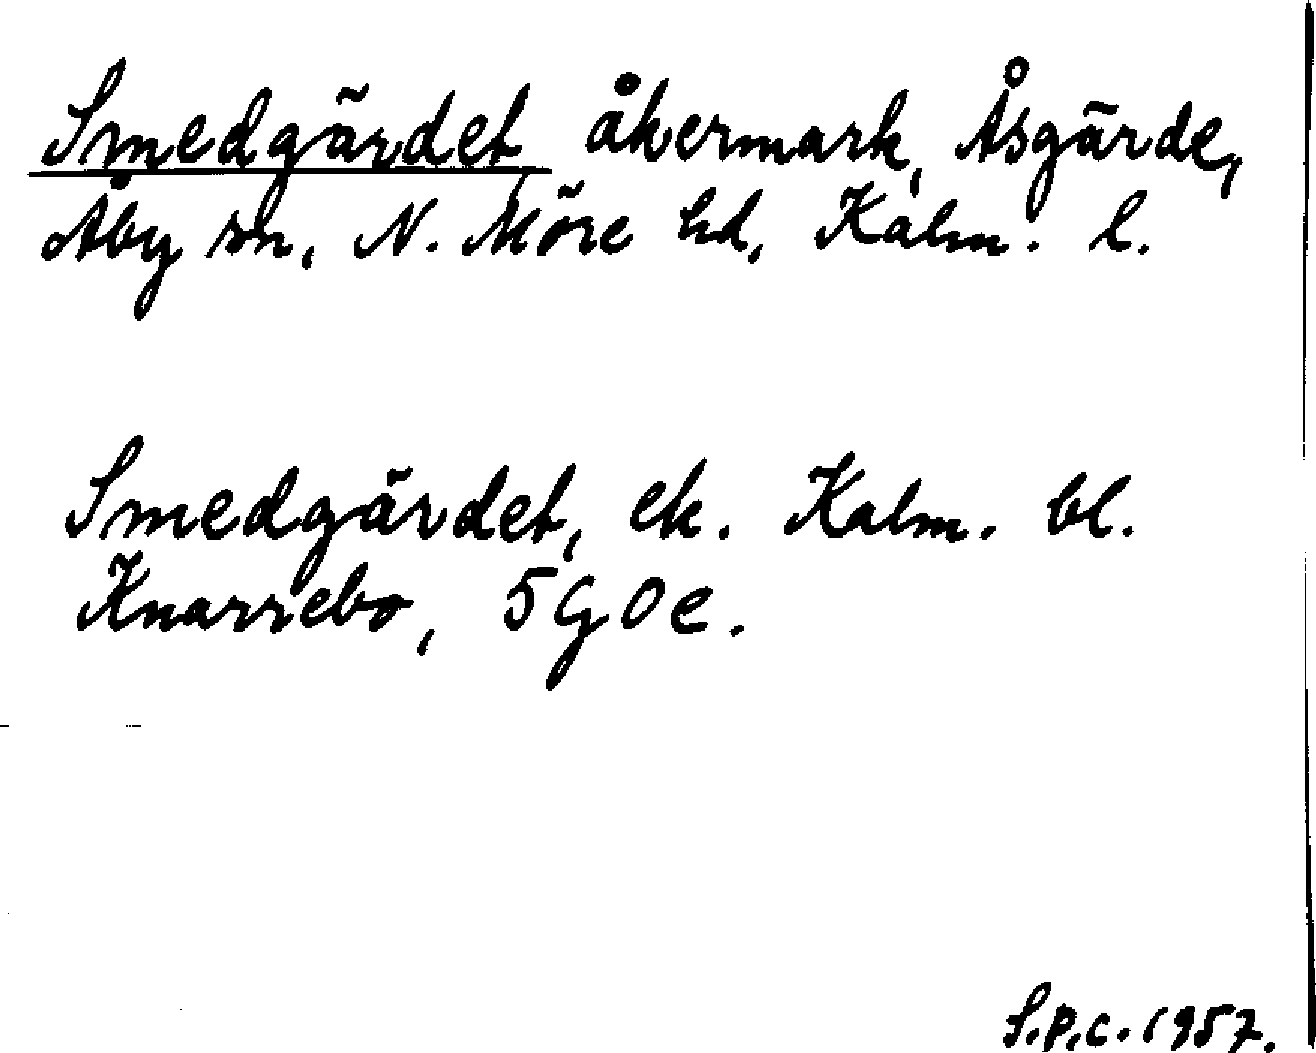 Smedgärdet, åkermark, Åsgärde,
Åby sn, N. Möre hd, Kalm. l.
Smedgärdet, ek. Kalm. bl.
Knarrebo, 5G0e.
S.P.C. 1957.